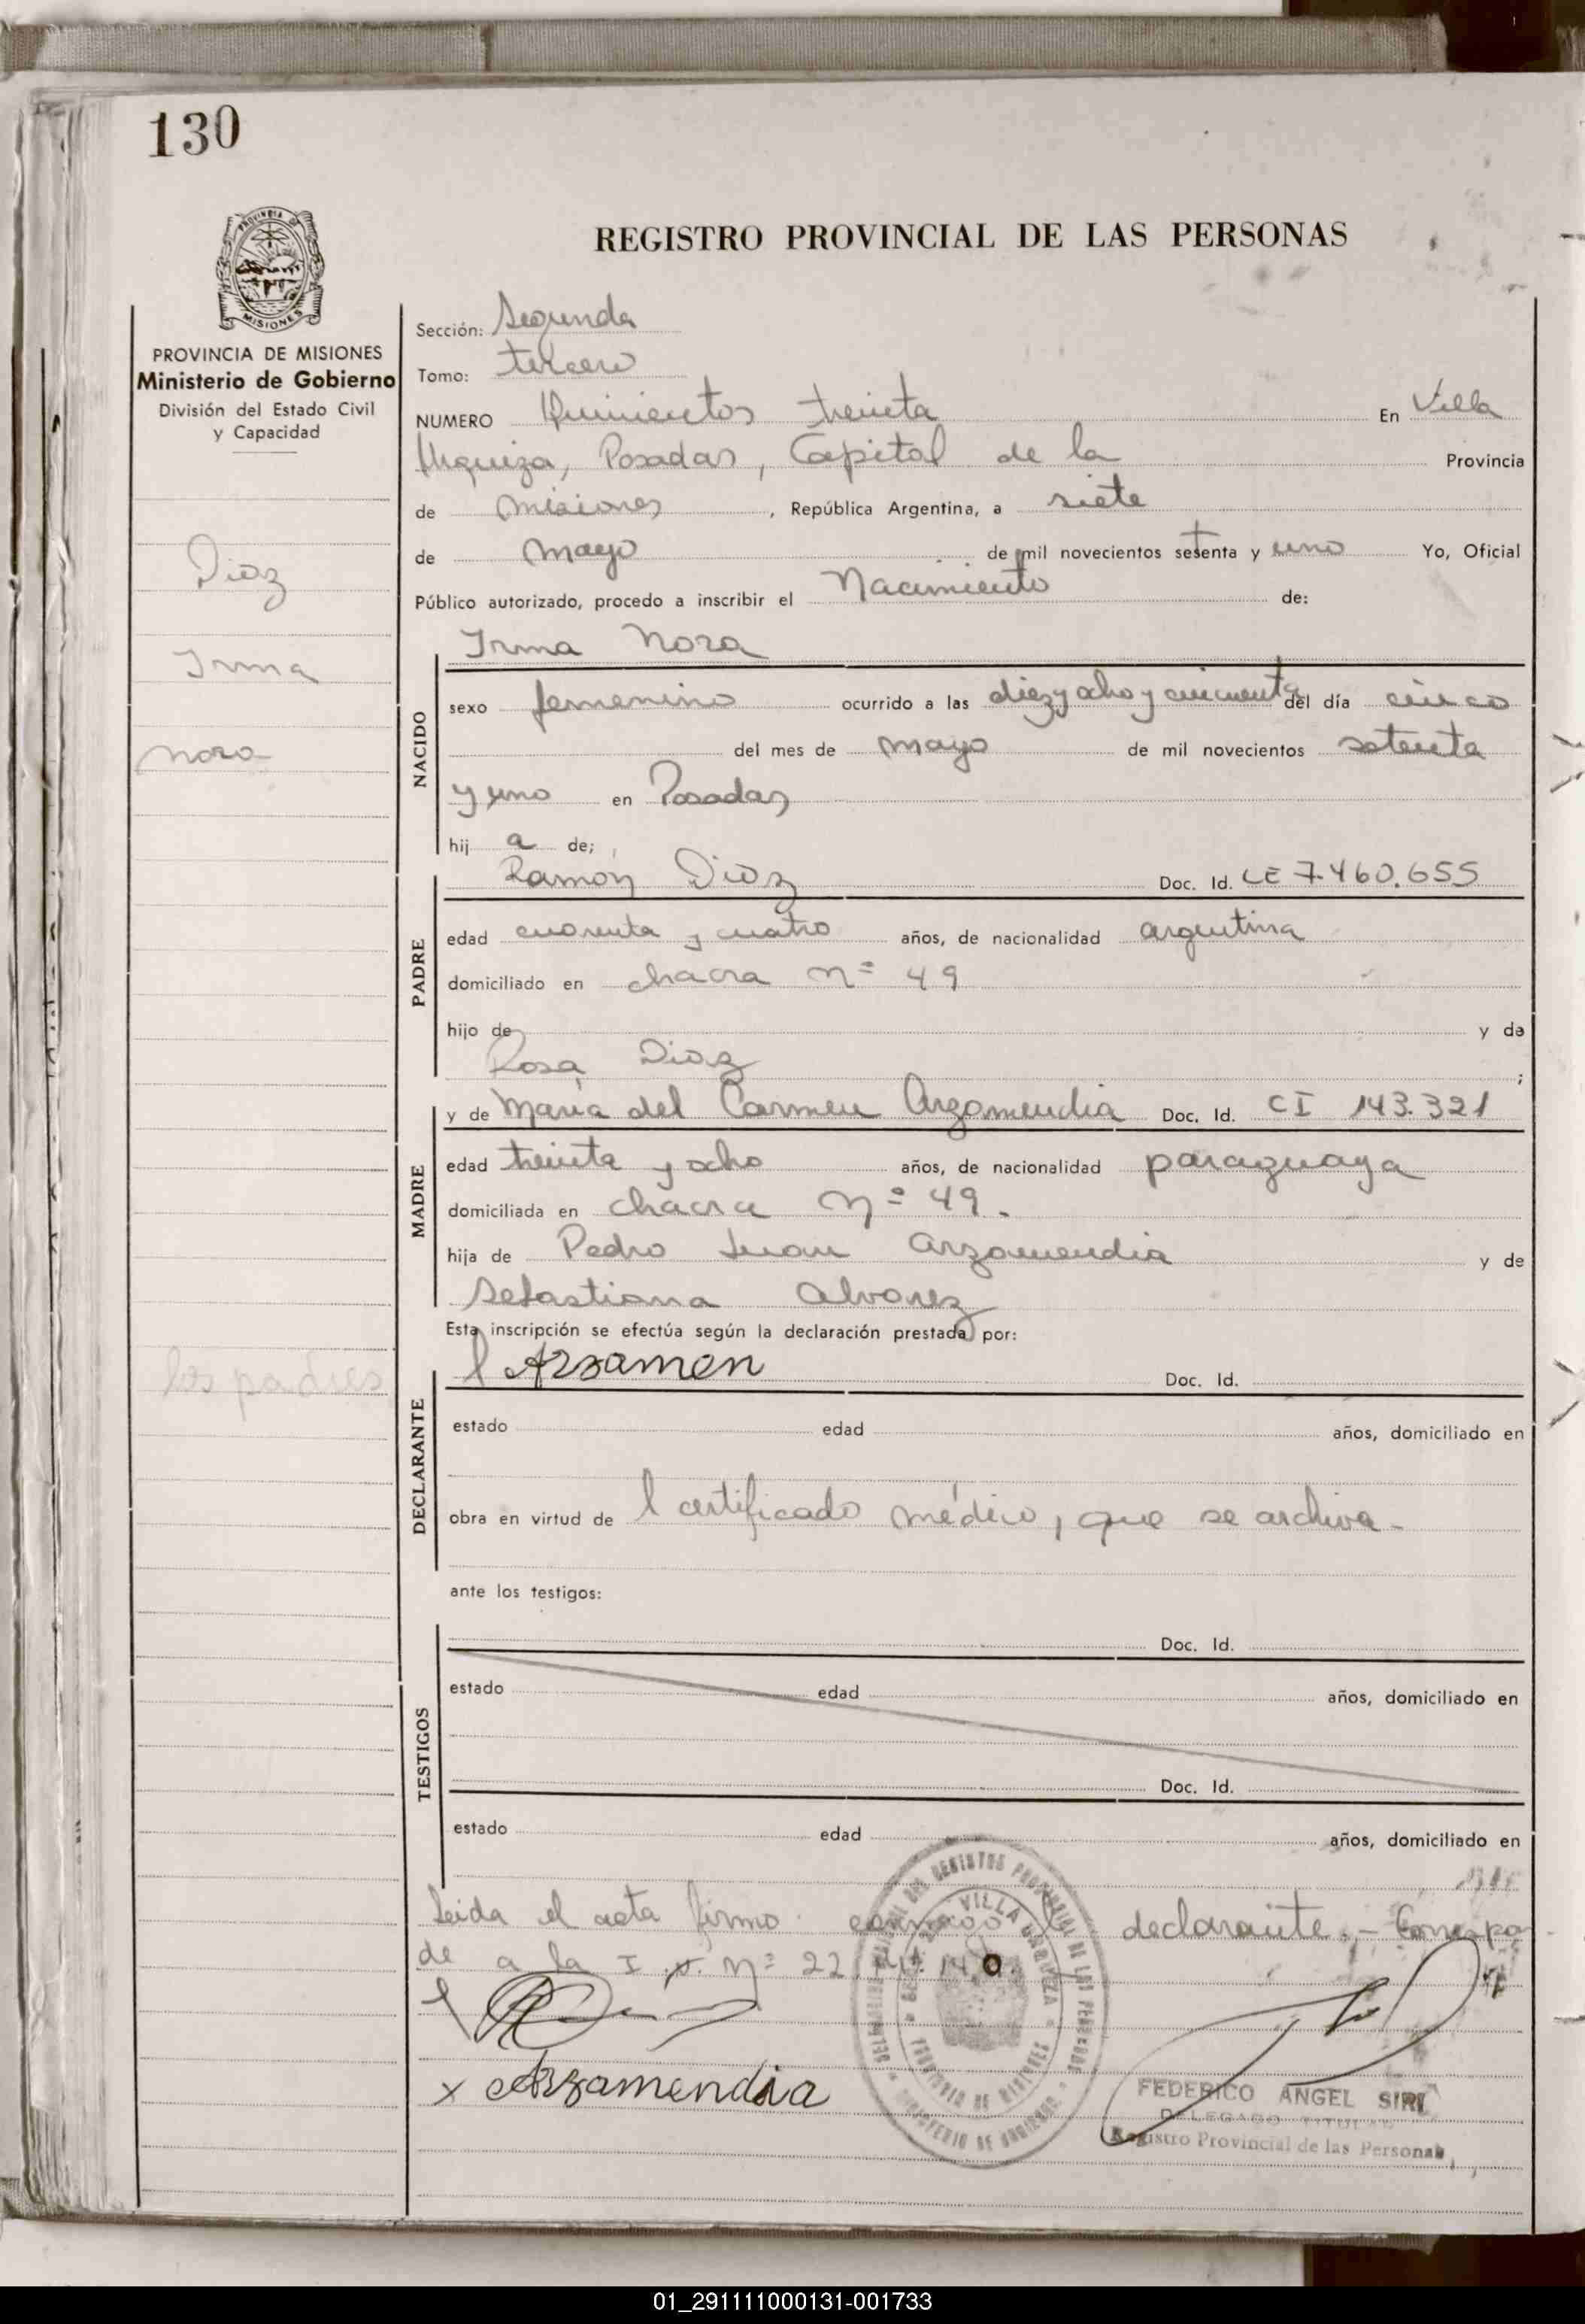 130
REGISTRO PROVINCIAL DE LAS PERSONAS
MISIONES
PROVINCIA DE MISIONES
Ministerio de Gobierno
División del Estado Civil
y Capacidad
Diaz
Irma
Nora
los padres
Sección: Segunda
Tomo: tercero
NUMERO Quinientos treinta En Villa
Urquiza, Posadas, Capital de la Provincia
de Misiones, República Argentina, a siete
de Mayo de mil novecientos setenta y uno Yo, Oficial
Público autorizado, procedo a inscribir el Nacimiento de:
Irma Nora
NACIDO
sexo femenino ocurrido a las diez y ocho y cincuenta del día cinco
del mes de mayo de mil novecientos setenta
y uno en Posadas
hij a de;
PADRE
Ramón Diaz Doc. Id. LE 7.460.655
edad cuarenta y cuatro años, de nacionalidad argentina
domiciliado en chacra nº 49
hijo de y de
Rosa Diaz ;
MADRE
y de Maria del Carmen Arzamendia Doc. Id. CI 143.321
edad treinta y ocho años, de nacionalidad paraguaya
domiciliada en chacra nº 49.
hija de Pedro Juan Arzamendia y de
Sebastiana Alvarez
Esta inscripción se efectúa según la declaración prestada por:
DECLARANTE
Arzamen Doc. Id.
estado edad años, domiciliado en
obra en virtud de l certificado médico, que se archiva.-
ante los testigos:
TESTIGOS
Doc. Id.
estado edad años, domiciliado en
Doc. Id.
estado edad años, domiciliado en
Leida el acta firma conmigo declarante.- Correspon
de a la I nº 22
Arzamendia
VILLA URQUIZA
PROVINCIA DE MISIONES
MINISTERIO DE GOBIERNO
FEDERICO ANGEL SIRI
DELEGADO TITULAR
Registro Provincial de las Personas
01_291111000131-001733